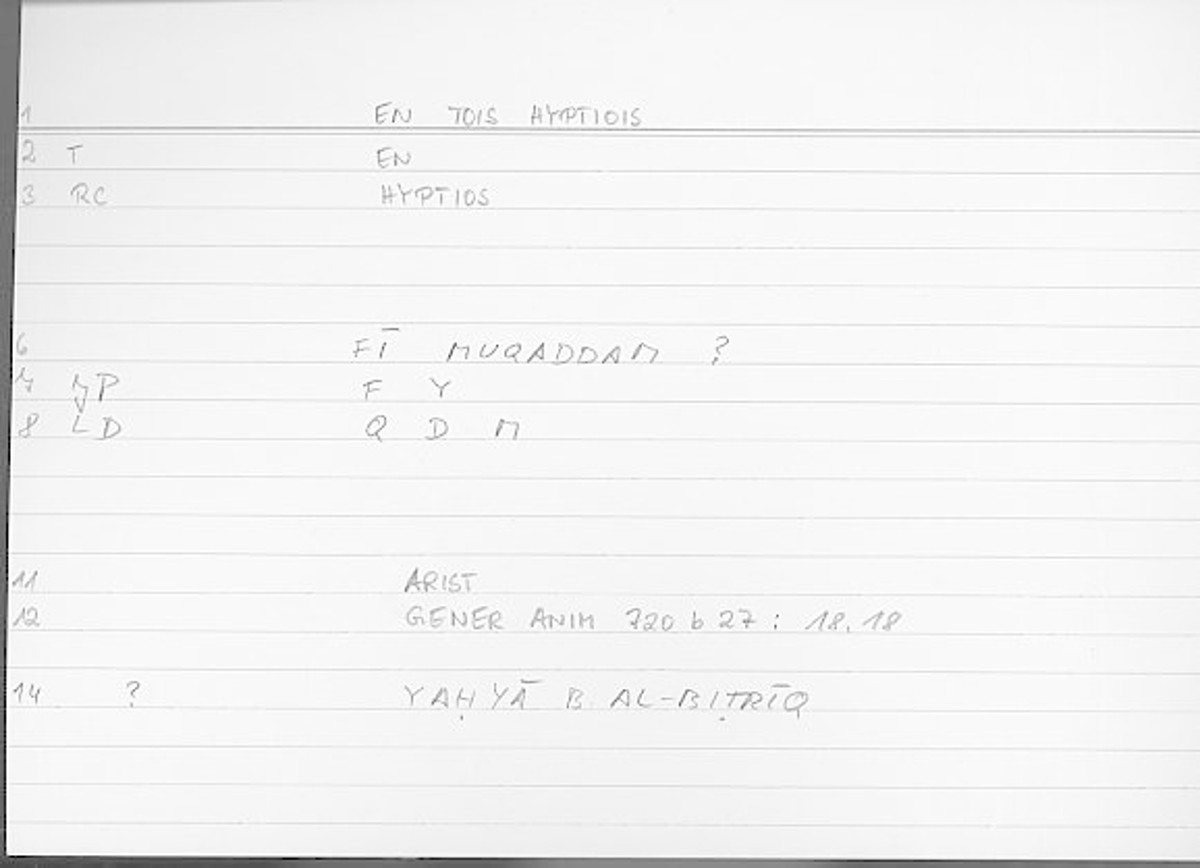 1 EN TOIS HYPTIOIS
2 T EN
3 RC HYPTIOS
6 FĪ MUQADDAM ?
7 P F Y
8 LD Q D M
11 ARIST
12 GENER ANIM 720 b 27 : 18.18
14 ? YAḤYĀ B. AL-BIṬRĪQ